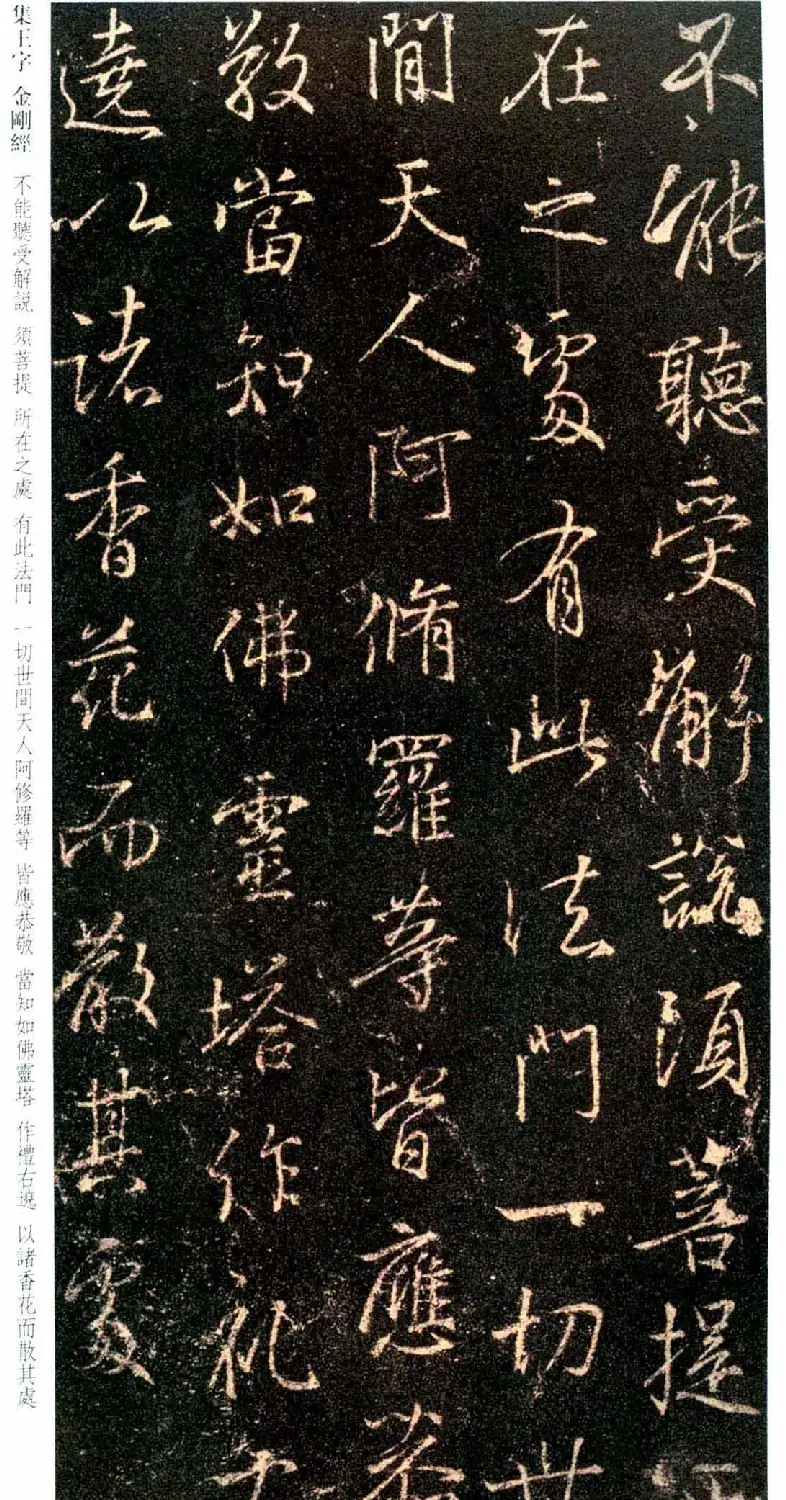 不能聽受解說須菩提所
在之處有此法門一切世
間天人阿脩羅等皆應恭
敬當知如佛靈塔作礼右
遶以諸香花而散其處
集王字 金剛經 不能聽受解説 須菩提 所在之處 有此法門 一切世間天人阿修羅等 皆應恭敬 當知如佛靈塔 作禮右遶 以諸香花而散其處